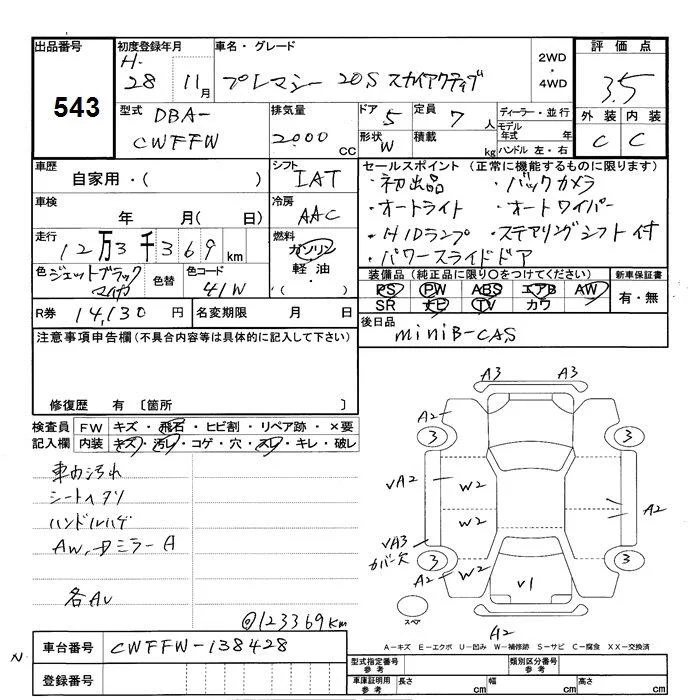 出品番号 初度登録年月 車名・グレード 2WD・4WD 評価点
543 H-28年11月 プレマシー 20S スカイアクティブ 3.5
型式 DBA-CWFFW 排気量 2000 CC ドア 5 定員 7 人 ディーラー・並行 外装 内装
形状 W 積載 kg モデル年式 年 ハンドル 左・右 C C
車歴 シフト セールスポイント (正常に機能するものに限ります)
自家用・( ) IAT ・初出品 ・バックカメラ
車検 冷房 ・オートライト ・オートワイパー
年 月( 日) AAC ・HIDランプ ・ステアリングシフト付
走行 燃料 ・パワースライドドア
12万3千369km ガソリン 軽油・( )
色 ジェットブラックマイカ 色替 色コード 41W
装備品 (純正品に限り○をつけてください) 新車保証書
PS PW ABS エアB AW 有・無
SR ナビ TV カワ
R券 14,130円 名変期限 月 日 後日品
注意事項申告欄(不具合内容等は具体的に記入して下さい) miniB-CAS
修復歴 有 〔箇所 〕
検査員 FW キズ・飛石・ヒビ割・リペア跡・×要
記入欄 内装 キズ・汚レ・コゲ・穴・スレ・キレ・破レ
車内汚れ
シートヘタリ
ハンドルハゲ
AW, ミラーA
各AU
@123369km
A3 A3
A2
3 3
VA2 W2 A2
W2
VA3 カバー欠
3 3
A2 W2 V1
スペア A2
A-キズ E-エクボ U-凹み W-補修跡 S-サビ C-腐食 XX-交換済
N 車台番号 CWFFW-138428
登録番号
型式指定番号 参考 類別区分番号 参考
車庫証明用 参考 長さ cm 幅 cm 高さ cm